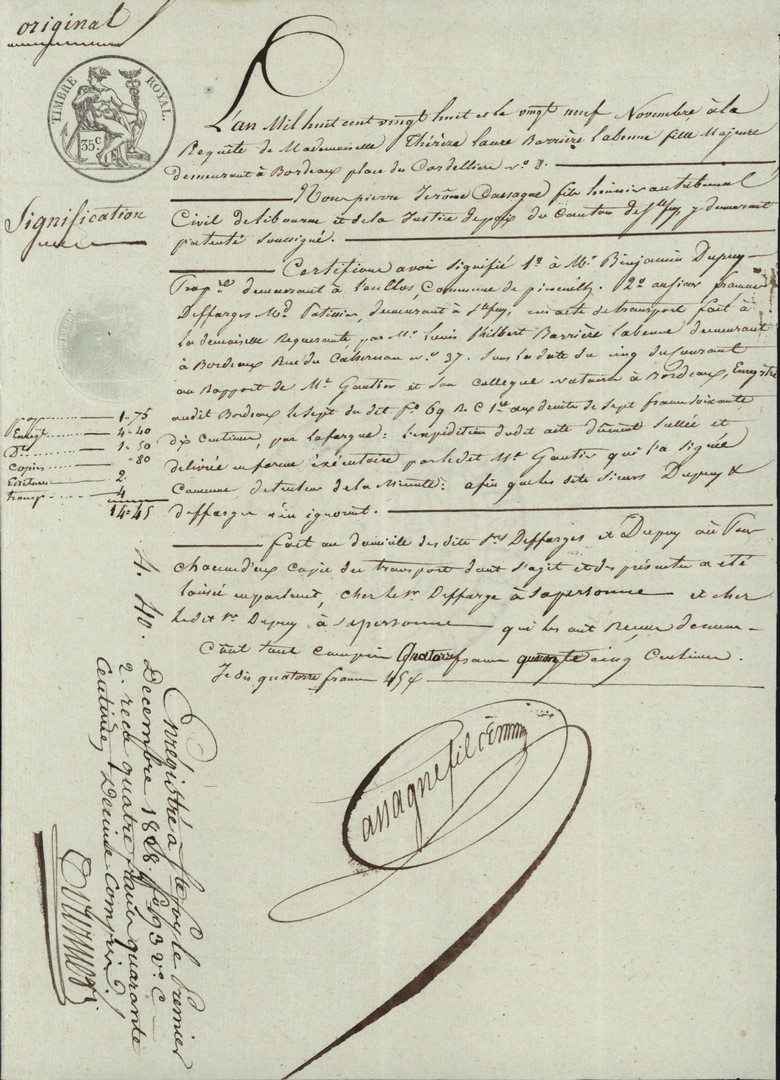 original
TIMBRE ROYAL.
35 c
L'an Mil huit cent vingt huit et le vingt neuf Novembre à la
Requête de Mademoiselle Thérèze laure Barrière labenne fille Majeure
demeurant à Bordeaux place des Cordelliers n.º 8.
Nous pierre Jerôme Cassagne fils huissier au tribunal
Signification
Civil de libourne et de la Justice de paix du Canton de Ste foy, y demeurant
patenté soussigné.
Certifions avoir signifié 1º à Mr. Benjamin Dupuy
Prop.re demeurant à , Commune de pineuilh. 2º au sieur
Deffarges Md. Patissier, demeurant à Ste foy, un acte de transport fait à
la demoiselle Requérante, par Mr. Louis Philbert Barrière labenne demeurant
à Bordeaux Rue du n.º 37. sous la date du cinq du Courant
au Rapport de Me Gautier et son collegue notaires à Bordeaux, Enregistré
audit Bordeaux le sept du dit fº 69 R. C 1re aux droits de sept francs soixante
dix Centimes, par lafargue: l'expédition dudit acte dûment scellée et
délivrée en forme exécutoire par ledit Me Gautier qui l'a signée
Comme détenteur de la Minute: afin que les dits sieurs Dupuy &
deffarges n'en ignorent.
1-75
Enregt 4-40
Dt 1-50
Copies -80
Ecritures 2.
transp. 4
14-45
fait au domicile des dits Srs Deffarges et Dupuy où Pour
chacun d'eux copie du transport dont s'agit et des présentes a été
laissée en parlant, chez le Sr Deffarge à sa personne et chez
ledit Sr. Dupuy à sa personne qui les ont Reçues
Coût tout compris Quatorze francs quarante cinq Centimes.
Je dis quatorze francs 45 c
Cassagne fils
4. 40. Enregistré à Ste foy le Premier
Decembre 1828 fº 93 vº C
2. recu quatre francs quarante
Centimes, Décime Compris